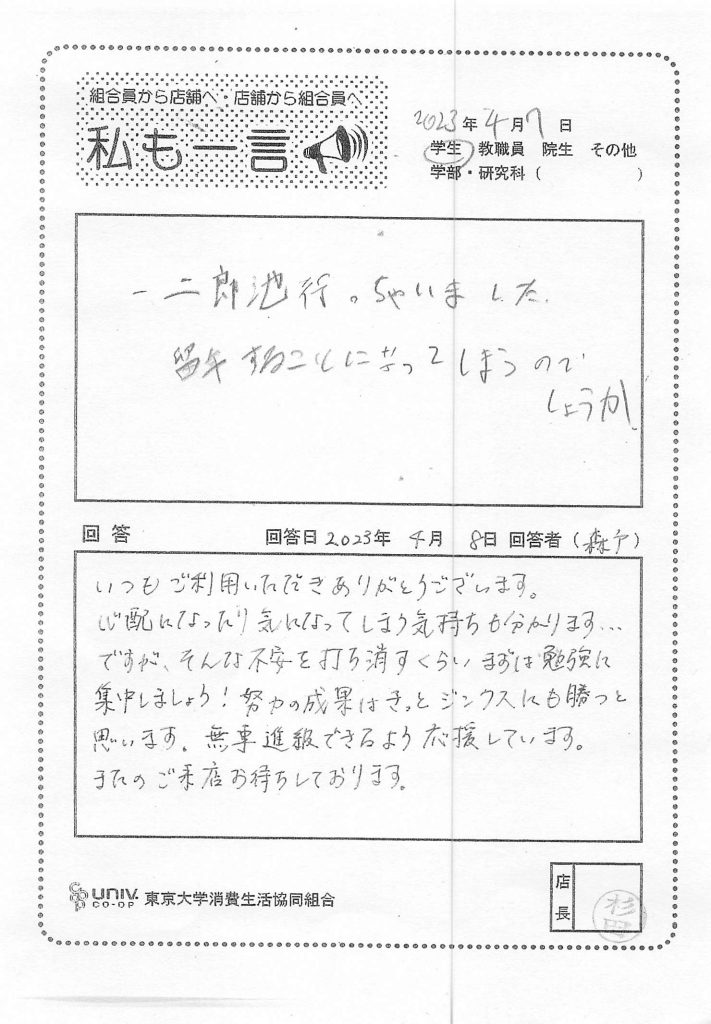 組合員から店舗へ・店舗から組合員へ
私も一言
2023年4月7日
学生 教職員 院生 その他
学部・研究科( )
一二郎池行っちゃいました
留年することになってしまうので
しょうか
回答 回答日 2023年 4月 8日 回答者(森戸)
いつもご利用いただきありがとうございます。
心配になったり気になってしまう気持ちも分かります…
ですが、そんな不安を打ち消すくらいまずは勉強に
集中しましょう!努力の成果はきっとジンクスにも勝つと
思います。無事進級できるよう応援しています。
またのご来店お待ちしております。
UNIV. CO-OP 東京大学消費生活協同組合
店長
杉田